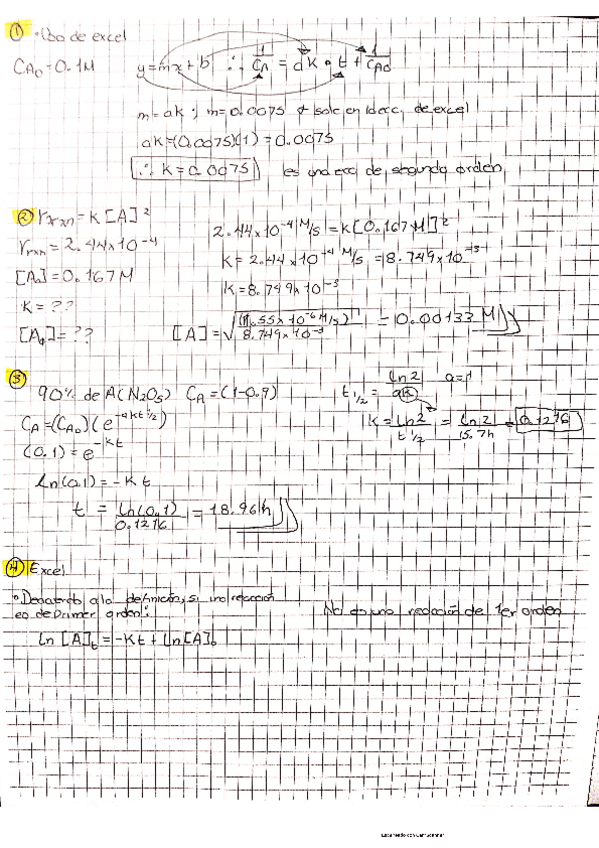 ① • Uso de excel
CA₀ = 0.1M
y = mx + b ∴ 1/CA = ak • t + 1/CA₀
m = ak ; m = 0.0075 * sale en la ecc. de excel
ak = (0.0075)(1) = 0.0075
∴ k = 0.0075 es una ecc de segundo orden
② rrxn = K [A]²
rrxn = 2.44x10⁻⁴
[A₀] = 0.167 M
K = ??
[A₀] = ??
2.44x10⁻⁴ M/s = K[0.167M]²
K = 2.44x10⁻⁴ M/s = 8.749x10⁻³
K = 8.749x10⁻³
[A] = √ (1.55x10⁻⁶ M/s) / 8.749x10⁻³ = 0.00133 M
③
90% de A(N₂O₅) CA = (1-0.9)
CA = (CA₀)(e^-akt½)
(0.1) = e^-kt
Ln(0.1) = -Kt
t = Ln(0.1) / 0.1216 = 18.96h
t½ = Ln2 / ak a=1
K = Ln2 / t½ = Ln2 / 5.7h = 0.1216
④ Excel
• De acuerdo a la definición, si una reacción
es de primer orden:
Ln [A]t = -Kt + Ln[A]₀
No es una reacción de 1er orden
Escaneado con CamScanner